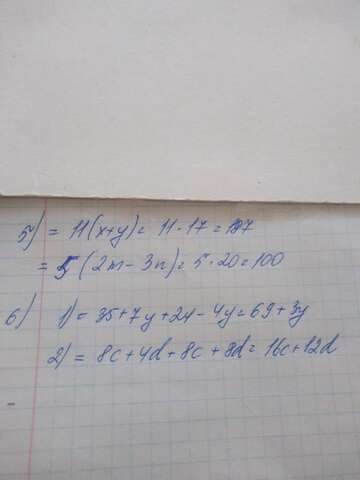 5) = 11(x+y) = 11·17 = 187
= 5(2m-3n) = 5·20 = 100
6) 1) = 35+7y+24-4y = 69+3y
2) = 8c+4d+8c+8d = 16c+12d